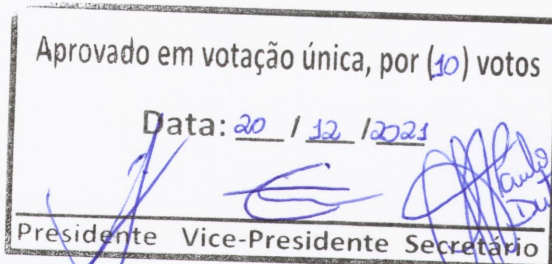 Aprovado em votação única, por (10) votos
Data: 20 / 12 / 2021
Paulo
Presidente Vice-Presidente Secretário